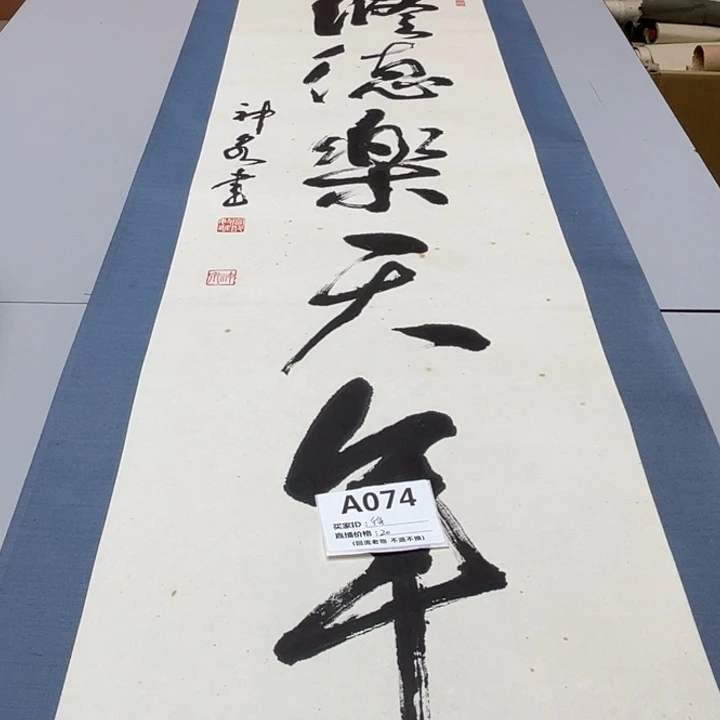 德樂天年
書
A074
买家ID:
直播价格:20
(回流老物 不退不换)